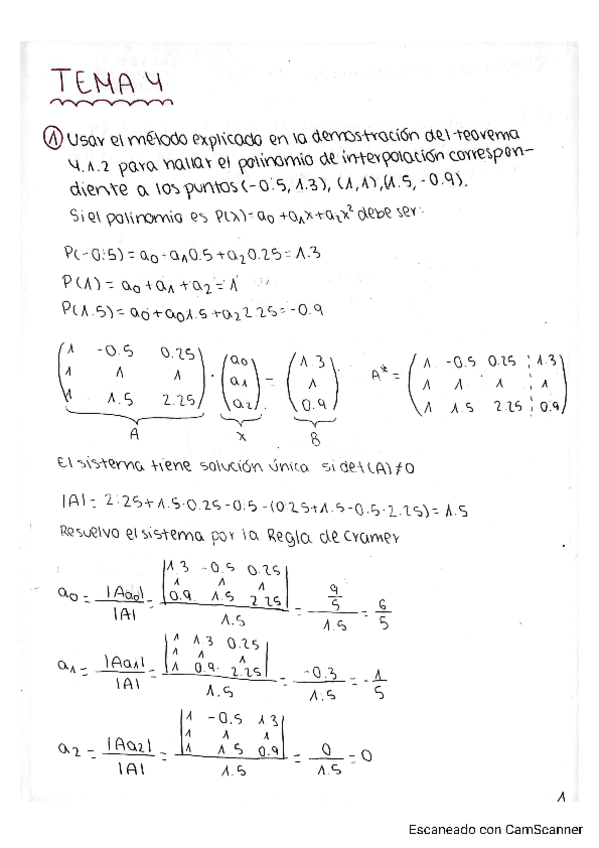 TEMA 4
① Usar el método explicado en la demostración del teorema
4.1.2 para hallar el polinomio de interpolación correspon-
diente a los puntos (-0.5, 1.3), (1,1), (1.5, -0.9).
Si el polinomio es P(x) = a0 + a1x + a2x² debe ser:
P(-0.5) = a0 - a1 0.5 + a2 0.25 = 1.3
P(1) = a0 + a1 + a2 = 1
P(1.5) = a0 + a0 1.5 + a2 2.25 = -0.9
1 -0.5 0.25 a0 1.3 1 -0.5 0.25 1.3
1 1 1 · a1 = 1 A* = 1 1 1 1
1 1.5 2.25 a2 0.9 1 1.5 2.25 0.9
A x B
El sistema tiene solución única si det(A) ≠ 0
|A| = 2.25 + 1.5·0.25 - 0.5 - (0.25 + 1.5 - 0.5·2.25) = 1.5
Resuelvo el sistema por la Regla de Cramer
1.3 -0.5 0.25
1 1 1
0.9 1.5 2.25
a0 = |Aa0| / |A| = / 1.5 = 9/5 / 1.5 = 6/5
1 1.3 0.25
1 1 1
1 0.9 2.25
a1 = |Aa1| / |A| = / 1.5 = -0.3 / 1.5 = -1/5
1 -0.5 1.3
1 1 1
1 1.5 0.9
a2 = |Aa2| / |A| = / 1.5 = 0 / 1.5 = 0
1
Escaneado con CamScanner